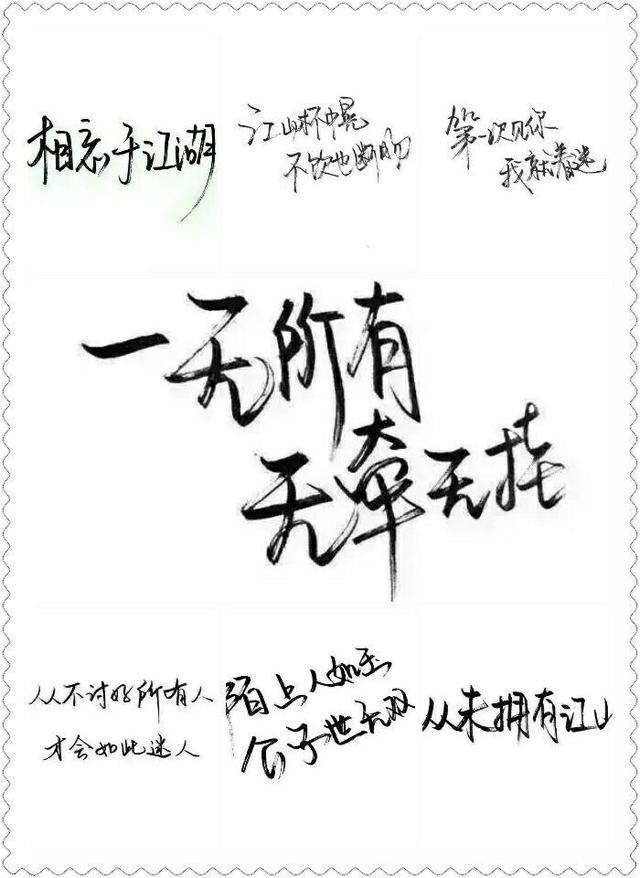 相忘于江湖
江山杯中晃
不饮也断肠
第一次见你
我就着迷
一无所有
无牵无挂
从不讨好所有人
才会如此迷人
陌上人如玉
公子世无双
从未拥有江山